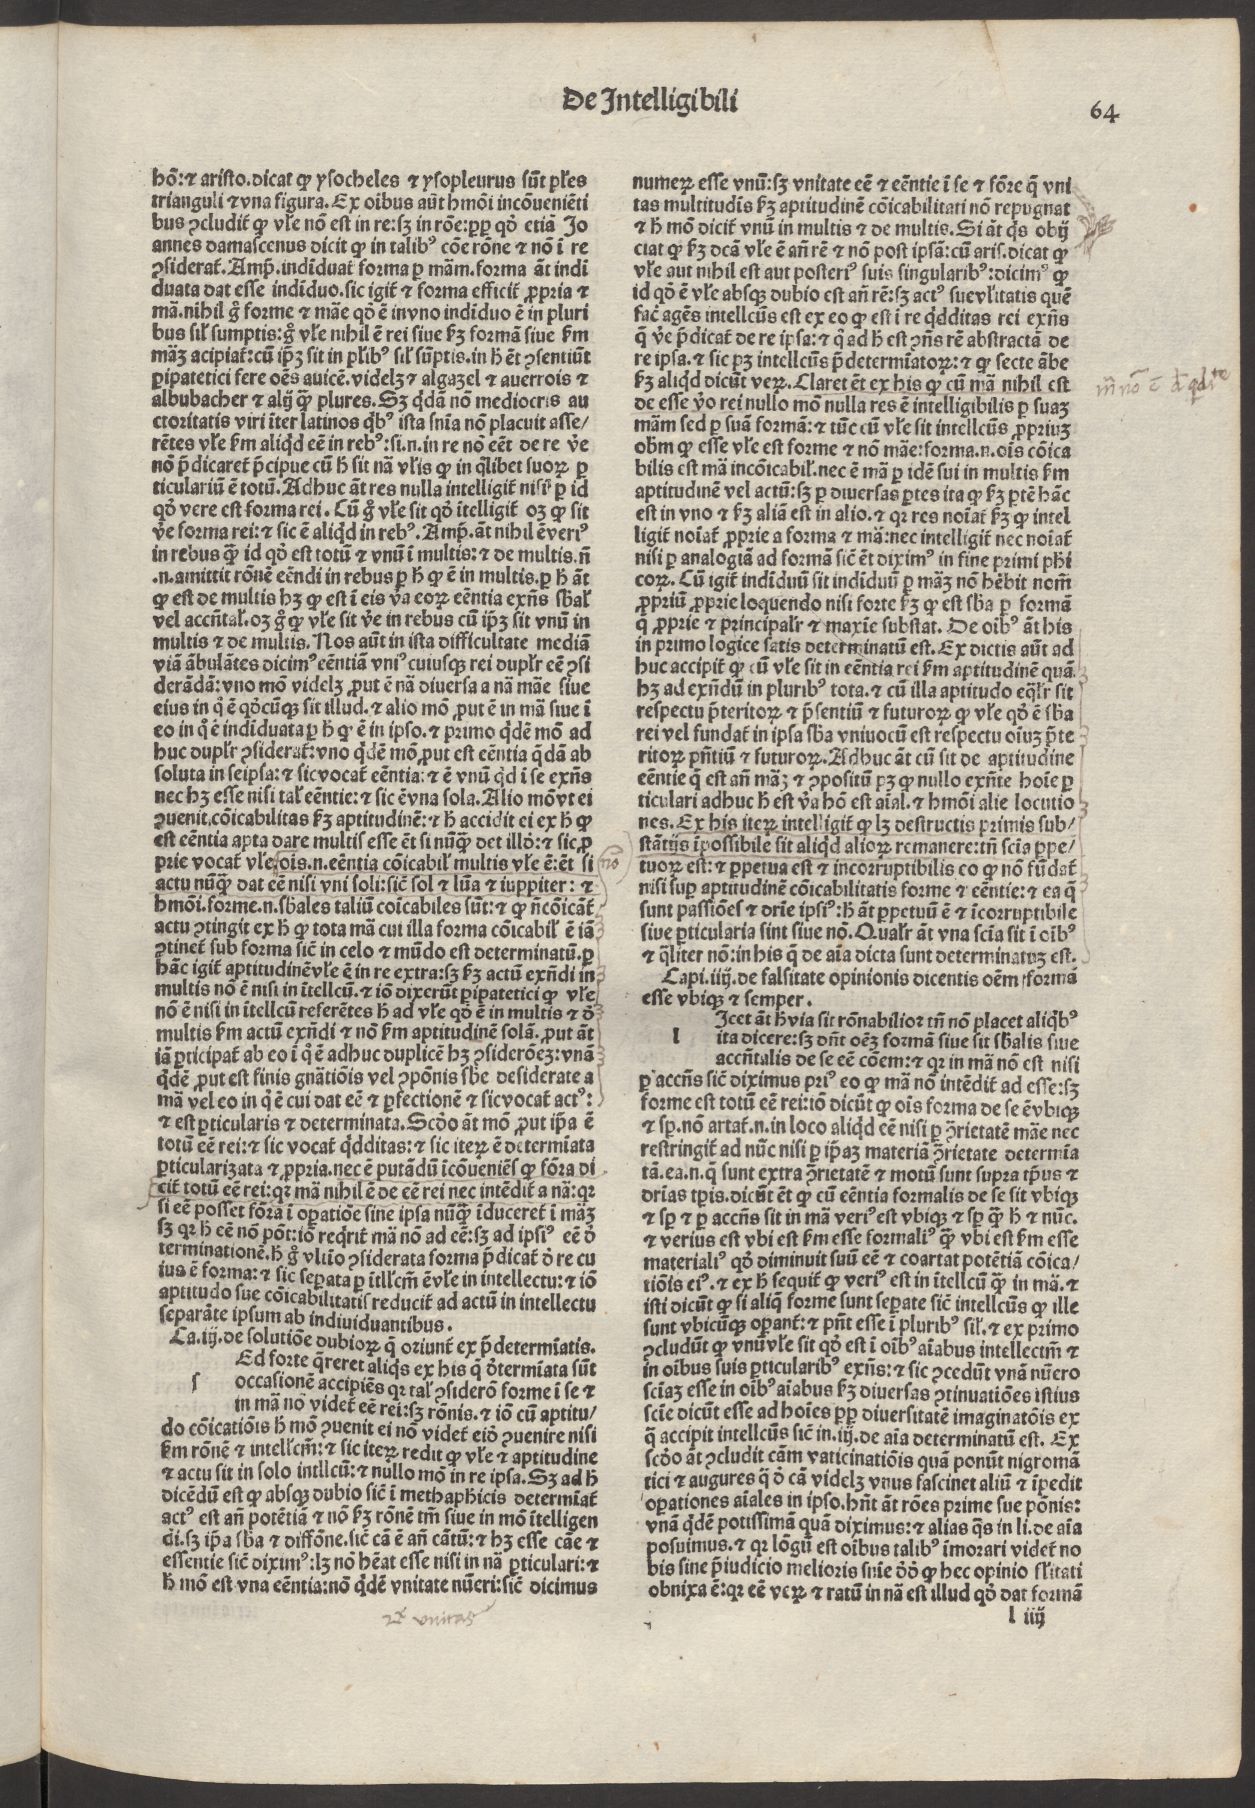 De Intelligibili
64
hō: ⁊ aristo. dicat ꝙ ysocheles ⁊ ysopleurus sūt ples
trianguli ⁊ vna figura. Ex oībus aūt hmōi incōueniēti
bus ꝯcludit̄ ꝙ vłe nō est in re: sꝫ in rōe: ꝓp̄ qḋ etiā Jo
annes damascenus dicit ꝙ in talibꝰ cōe rōne ⁊ nō ī re
ꝯsiderat̄. Amp̄. indiuduat̄ forma ꝑ mām. forma āt indi
duata dat esse indiuduo. sic igit̄ ⁊ forma efficit̄ ꝓpria ⁊
mā. nihil g̊ forme ⁊ māe qḋ ē in vno indiuduo ē in pluri
bus siłʼ sumptis: g̊ vłe nihil ē rei siue kꝫ formā siue km̄
māꝫ acipiat̄: cū ip̄ꝫ sit in plībꝰ siłʼ sūptis. in h̄ ēt ꝯsentiūt
ꝑipatetici fere oēs auicē. videlꝫ ⁊ algazel ⁊ auerrois ⁊
albubacher ⁊ alij qꝫ plures. Sꝫ qdā nō mediocris au
ctoritatis viri īter latinos qbꝰ ista sn̄ia nō placuit asse/
rētes vłe km̄ aliqd eē in rebꝰ: si. n. in re nō eēt de re ve
nō p̄dicaret̄ p̄cipue cū h̄ sit nā vłis ꝙ in qlibet suoꝝ ꝑ
ticulariū ē totū. Adhuc āt res nulla intelligit̄ nisi ꝑ id
qḋ vere est forma rei. Cū g̊ vłe sit qḋ ītelligit̄ oꝫ ꝙ sit
ve forma rei: ⁊ sic ē aliqd in rebꝰ. Amp̄. āt nihil ē veriꝰ
in rebus qꝫ id qḋ est totū ⁊ vnū ī multis: ⁊ de multis. ñ
.n. amittit rōnē eēndi in rebus ꝑ h̄ ꝙ ē in multis. ꝑ h̄ āt
ꝙ est de multis hꝫ ꝙ est ī eis va eoꝝ eēntia exn̄s sbałʼ
vel accn̄tałʼ. oꝫ g̊ ꝙ vłe sit ve in rebus cū ip̄ꝫ sit vnū in
multis ⁊ de multis. Nos aūt in ista difficultate mediā
viā ābulātes dicimꝰ eēntiā vniꝰ cuiusqꝫ rei duplr̄ eē ꝯsi
derādā: vno mō videlꝫ ꝓut ē nā diuersa a nā māe siue
eius in q̊ ē qḋcūqꝫ sit illud. ⁊ alio mō ꝓut ē in mā siue ī
eo in q̊ ē indiuduata ꝑ h̄ ꝙ ē in ipso. ⁊ primo qdē mō ad
huc duplr̄ ꝯsiderat̄: vno qdē mō ꝓut est eēntia qdā ab
soluta in seipsa: ⁊ sic vocat̄ eēntia: ⁊ ē vnū qd ī se exn̄s
nec hꝫ esse nisi tałʼ eēntie: ⁊ sic ē vna sola. Alio mō vt ei
ꝯuenit cōicabilitas kꝫ aptitudinē: ⁊ h̄ accidit ei ex h̄ ꝙ
est eēntia apta dare multis esse ēt si nūqꝫ det illḋ: ⁊ sic ꝓ
prie vocat̄ vłe oīs. n. eēntia cōicabiłʼ multis vłe ē: ēt si
actu nūqꝫ dat eē nisi vni soli: sic̄ sol ⁊ lūa ⁊ iuppiter: ⁊
hmōi. forme. n. sbales taliū coīcabiles sūt: ⁊ ꝙ ñ cōicāt̄
actu ꝯtingit ex h̄ ꝙ tota mā cui illa forma cōicabiłʼ ē iā
ꝯtinet̄ sub forma sic̄ in celo ⁊ mūdo est determinatū. ꝑ
hāc igit̄ aptitudinē vłe ē in re extra: sꝫ kꝫ actū exn̄di in
multis nō ē nisi in ītellcū. ⁊ iō dixerūt ꝑipatetici ꝙ vłe
nō ē nisi in ītellcū referētes h̄ ad vłe qḋ ē in multis ⁊ ḋ
multis km̄ actū exn̄di ⁊ nō km̄ aptitudinē solā. ꝓut āt
iā ꝑticipat̄ ab eo ī q̊ ē adhuc duplicē hꝫ ꝯsiderōeꝫ: vnā
qdē ꝓut est finis gn̄atiōis vel ꝯpōnis sbe desiderate a
mā vel eo in q̊ ē cui dat eē ⁊ ꝑfectionē ⁊ sic vocat̄ actꝰ:
⁊ est ꝑticularis ⁊ determinata. Scḋo āt mō ꝓut ip̄a ē
totū eē rei: ⁊ sic vocat̄ qdditas: ⁊ sic iteꝝ ē determīata
ꝑticularizata ⁊ ꝓpria. nec ē putādū īcōueniēs ꝙ fōra di
cit̄ totū eē rei: qꝛ mā nihil ē de eē rei nec intēdit̄ a nā: qꝛ
si eē posset fōra ī oꝑatiōe sine ipsa nūqꝫ īduceret̄ ī māꝫ
sꝫ qꝛ h̄ eē nō pōt: iō reqrit̄ mā nō ad eē: sꝫ ad ipsiꝰ eē ḋ
terminationē. h̄ g̊ vltīo ꝯsiderata forma p̄dicat̄ ḋ re cu
ius ē forma: ⁊ sic seꝑata ꝑ ītllcm̄ ē vłe in intellectu: ⁊ iō
aptitudo sue cōicabilitatis reducit̄ ad actū in intellectu
separāte ipsum ab indiuiduantibus.
Ca. iij. de solutiōe dubioꝝ q̄ oriunt̄ ex p̄determīatis.
s
Ed forte q̄reret aliqs ex his q̄ ḋtermīata sūt
occasionē accipiēs qꝛ tałʼ ꝯsiderō forme ī se ⁊
in mā nō videt̄ eē rei: sꝫ rōnis. ⁊ iō cū aptitu/
do cōicatiōis h̄ mō ꝯuenit ei nō videt̄ eiḋ ꝯuenire nisi
km̄ rōnē ⁊ intellcm̄: ⁊ sic iteꝝ redit ꝙ vłe ⁊ aptitudine
⁊ actu sit in solo intllcū: ⁊ nullo mō in re ipsa. Sꝫ ad h̄
dicēdū est ꝙ absqꝫ dubio sic̄ ī methaph̄icis determīat̄
actꝰ est an̄ potētiā ⁊ nō kꝫ rōnē tm̄ siue in mō ītelligen
di. sꝫ ip̄a sba ⁊ diffōne. sic̄ cā ē an̄ cātū: ⁊ hꝫ esse cāe ⁊
essentie sic̄ diximꝰ: lꝫ nō hēat esse nisi in nā ꝑticulari: ⁊
h̄ mō est vna eēntia: nō qdē vnitate nūeri: sic̄ dicimus
numeꝝ esse vnū: sꝫ vnitate eē ⁊ eēntie ī se ⁊ fōre q̄ vni
tas multitudīs kꝫ aptitudinē cōicabilitati nō repugnat
⁊ h̄ mō dicit̄ vnū in multis ⁊ de multis. Si āt qs obij
ciat ꝙ kꝫ dcā vłe ē an̄ rē ⁊ nō post ipsā: cū aris. dicat ꝙ
vłe aut nihil est aut posteriꝰ suis singularibꝰ: dicimꝰ ꝙ
id qḋ ē vłe absqꝫ dubio est an̄ rē: sꝫ actꝰ sue vłitatis quē
fac̄ agēs intellcūs est ex eo ꝙ est ī re qdditas rei exn̄s
q̄ ve p̄dicat̄ de re ipsa: ⁊ q̊ ad h̄ est ꝯn̄s rē abstractā de
re ipsa. ⁊ sic pꝫ intellcūs p̄determīatoꝝ: ⁊ ꝙ secte ābe
kꝫ aliqd dicūt veꝝ. Claret ēt ex his ꝙ cū mā nihil est
de esse vo rei nullo mō nulla res ē intelligibilis ꝑ suaꝫ
mām sed ꝑ suā formā: ⁊ tūc cū vłe sit intellcūs ꝓpriuꝫ
obm̄ ꝙ esse vłe est forme ⁊ nō māe: forma. n. oīs cōica
bilis est mā incōicabiłʼ. nec ē mā ꝑ idē sui in multis km̄
aptitudinē vel actū: sꝫ ꝑ diuersas ꝑtes ita ꝙ kꝫ ꝑtē hāc
est in vno ⁊ kꝫ aliā est in alio. ⁊ qꝛ res noīat̄ kꝫ ꝙ intel
ligit̄ noīat̄ ꝓprie a forma ⁊ mā: nec intelligit̄ nec noīat̄
nisi ꝑ analogiā ad formā sic̄ ēt diximꝰ in fine primi phi
coꝝ. Cū igit̄ indiuiduū sit indiuiduū ꝑ māꝫ nō hēbit nom̄
ꝓpriū ꝓprie loquendo nisi forte kꝫ ꝙ est sba ꝑ formā
q̄ ꝓprie ⁊ principalr̄ ⁊ maxīe substat. De oibꝰ āt his
in primo logice satis determinatū est. Ex dictis aūt ad
huc accipit̄ ꝙ cū vłe sit in eēntia rei km̄ aptitudinē quā
hꝫ ad exn̄dū in pluribꝰ tota. ⁊ cū illa aptitudo eqlr̄ sit
respectu p̄teritoꝝ ⁊ p̄sentiū ⁊ futuroꝝ ꝙ vłe qḋ ē sba
rei vel fundat̄ in ipsa sba vniuocū est respectu oīuꝫ p̄te
ritoꝝ pn̄tiū ⁊ futuroꝝ. Adhuc āt cū sit de aptitudine
eēntie q̄ est an̄ māꝫ ⁊ ꝯpositū pꝫ ꝙ nullo exn̄te hoīe ꝑ
ticulari adhuc h̄ est va hō est aīal. ⁊ hmōi alie locutio
nes. Ex his iteꝝ intelligit̄ ꝙ lꝫ destructis primis sub/
stātijs īpossibile sit aliqd alioꝝ remanere: tn̄ scīa ꝑpe/
tuoꝝ est: ⁊ ꝑpetua est ⁊ incorruptibilis eo ꝙ nō fūdat̄
nisi suꝑ aptitudinē cōicabilitatis forme ⁊ eēntie: ⁊ ea q̄
sunt passiōes ⁊ drīe ipsiꝰ: h̄ āt ꝑpetuū ē ⁊ īcorruptibile
siue ꝑticularia sint siue nō. Qualr̄ āt vna scīa sit ī oibꝰ
⁊ qliter nō: in his q̄ de aīa dicta sunt determinatuꝫ est.
Capi. iiij. de falsitate opinionis dicentis oēm formā
esse vbiqꝫ ⁊ semper.
l
Icet āt h̄ via sit rōnabilior tn̄ nō placet aliqbꝰ
ita dicere: sꝫ dn̄t oēꝫ formā siue sit sbalis siue
accn̄talis de se eē cōem: ⁊ qꝛ in mā nō est nisi
ꝑ accn̄s sic̄ diximus priꝰ eo ꝙ mā nō intēdit̄ ad esse: sꝫ
forme est totū eē rei: iō dicūt ꝙ oīs forma de se ē vbiqꝫ
⁊ sꝑ. nō artat̄. n. in loco aliqd eē nisi ꝑ ꝯrietatē māe nec
restringit̄ ad nūc nisi ꝑ ip̄aꝫ materiā ꝯrietate determīa
tā. ea. n. q̄ sunt extra ꝯrietatē ⁊ motū sunt supra tp̄us ⁊
drīas tp̄is. dicūt ēt ꝙ cū eēntia formalis de se sit vbiqꝫ
⁊ sꝑ ⁊ ꝑ accn̄s sit in mā veriꝰ est vbiqꝫ ⁊ sꝑ qꝫ h̄ ⁊ nūc.
⁊ verius est vbi est km̄ esse formaliꝰ qꝫ vbi est km̄ esse
materialiꝰ qḋ diminuit suū eē ⁊ coartat potētiā cōica/
tiōis eiꝰ. ⁊ ex h̄ sequit̄ ꝙ veriꝰ est in ītellcū qꝫ in mā. ⁊
isti dicūt ꝙ si aliq̄ forme sunt seꝑate sic̄ intellcūs ꝙ ille
sunt vbicūqꝫ oꝑant̄: ⁊ pn̄t esse ī pluribꝰ siłʼ. ⁊ ex primo
ꝯcludūt ꝙ vnū vłe sit qḋ est ī oibꝰ aīabus intellectm̄ ⁊
in oībus suis ꝑticularibꝰ exn̄s: ⁊ sic ꝯcedūt vnā nūero
scīaꝫ esse in oībꝰ aīabus kꝫ diuersas ꝯtinuatiōes istius
scīe dicūt esse ad hoīes ꝓp̄ diuersitatē imaginatōis ex
q̄ accipit intellcūs sic̄ in. iij. de aīa determinatū est. Ex
scḋo āt ꝯcludit cām vaticinatiōis quā ponūt nigromā
tici ⁊ augures q̄ ḋ cā videlꝫ vnus fascinet aliū ⁊ īpedit
oꝑationes aīales in ipso. hn̄t āt rōes prime sue pōnis:
vnā qdē potissimā quā diximus: ⁊ alias qs in li. de aīa
posuimus. ⁊ qꝛ lōgū est oībus talibꝰ īmorari videt̄ no
bis sine p̄iudicio melioris snīe ḋḋ ꝙ hec opinio flitati
obnixa ē: qꝛ eē veꝝ ⁊ ratū in nā est illud qḋ dat formā
l iiij
nō
vnitas